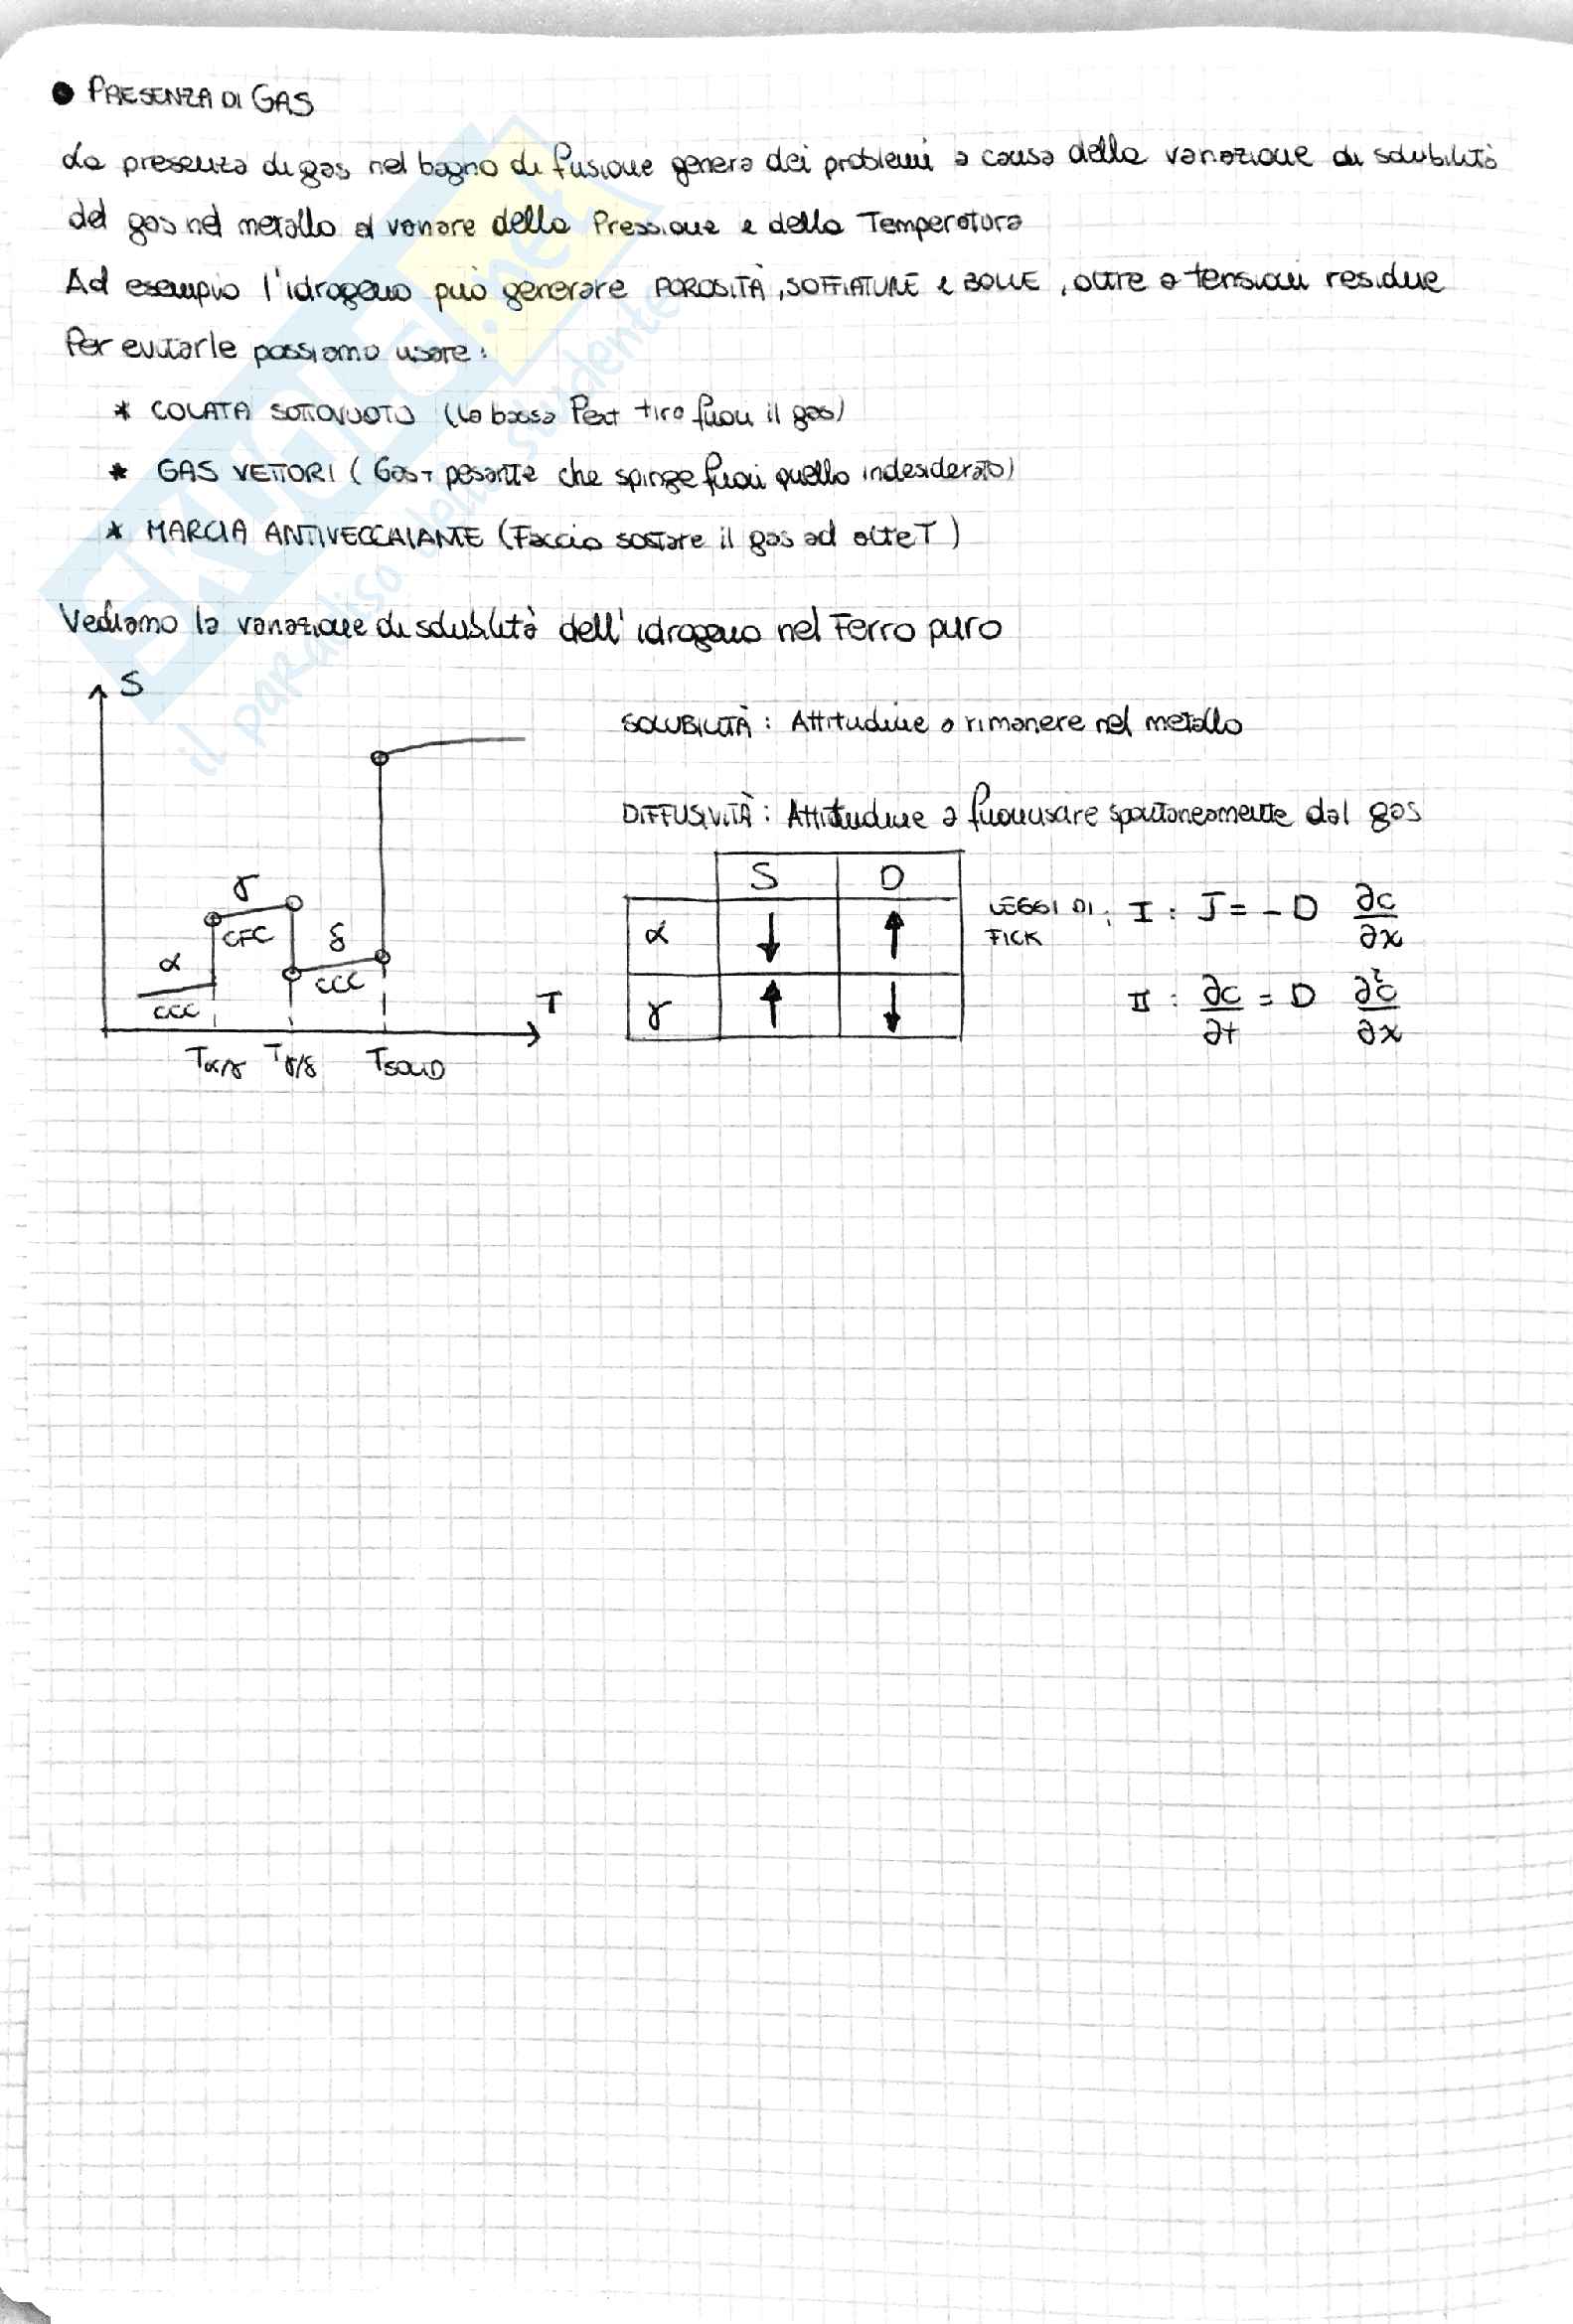 • PRESENZA DI GAS
La presenza di gas nel bagno di fusione genera dei problemi a causa della variazione di solubilità
del gas nel metallo al variare della Pressione e della Temperatura
Ad esempio l'idrogeno può generare POROSITÀ, SOFFIATURE e BOLLE, oltre a tensioni residue
Per evitarle possiamo usare:
* COLATA SOTTOVUOTO (la bassa Pext tira fuori il gas)
* GAS VETTORI (Gas + pesante che spinge fuori quello indesiderato)
* MARCIA ANTIVECCHIANTE (Faccio sostare il gas ad alte T)
Vediamo la variazione di solubilità dell'idrogeno nel Ferro puro
S
SOLUBILITÀ: Attitudine a rimanere nel metallo
DIFFUSIVITÀ: Attitudine a fuoriuscire spontaneamente dal gas
S D
α ↓ ↑
γ ↑ ↓
LEGGI DI FICK: I: J = -D ∂c/∂x
II: ∂c/∂t = D ∂²c/∂x
γ
CFC
δ
CCC
α
CCC
T
Tα/γ Tγ/δ TSOLID
SKUOLA.net
il paradiso dello studente